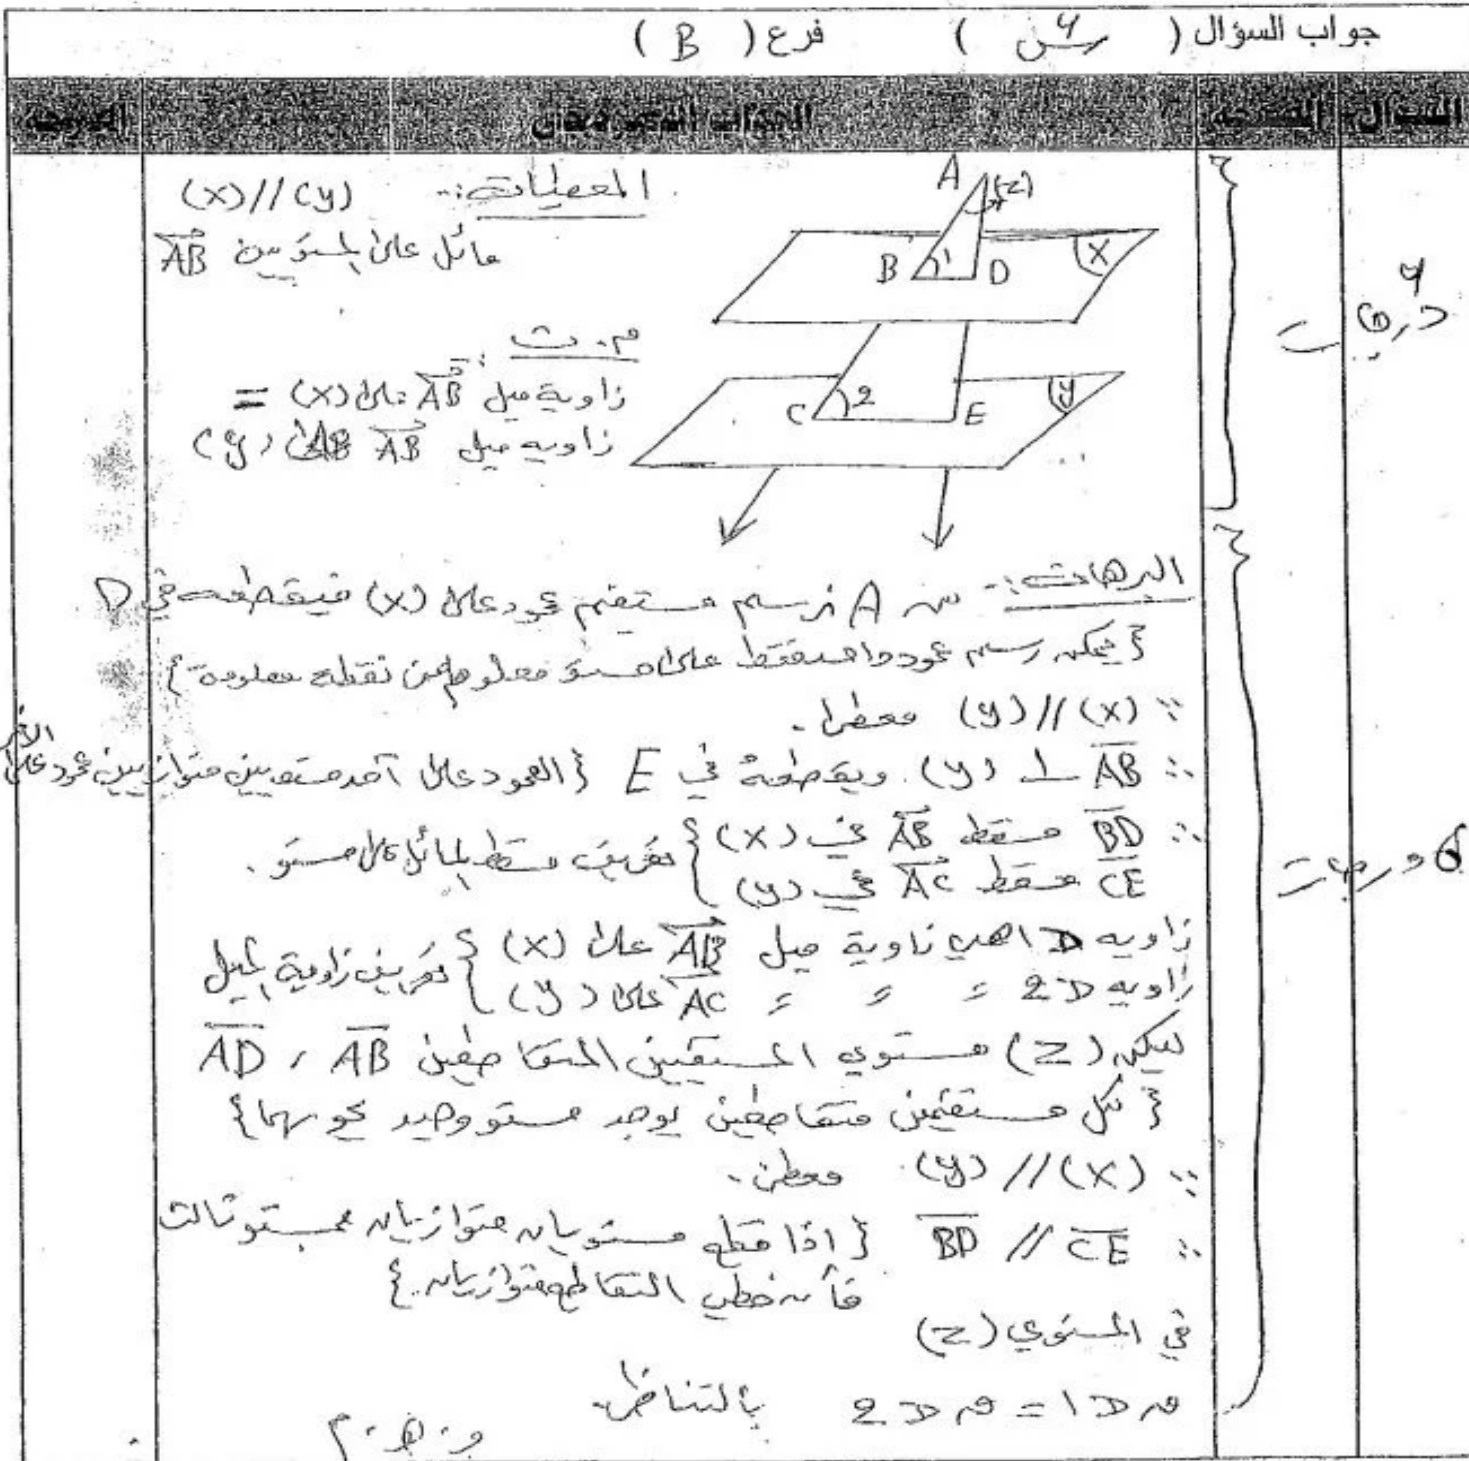 جواب السؤال ( س ) فرع ( B )
السؤال
الدرجة
المعطيات :- (x) // (y)
AB مائل على المستويين
A
(z)
B
1
D
(X)
C
2
E
(y)
م. ث :
زاوية ميل AB على (x) =
زاويه ميل AB (y)
درجات
البرهان :- من A نرسم مستقيم عمود على (x) فيقطعه في D
{ يمكن رسم عمود واحد فقط على مستو معلوم من نقطة معلومة }
∵ (x) // (y) معطى .
∴ AB ⊥ (y) . ويقطعه في E { العمود على أحد مستويين متوازيين عمود على الآخر
∴ BD مسقط AB في (x)
CE مسقط AC في (y) } تعريف مسقط المائل على مستو .
6 درجات
زاويه 1 هي زاوية ميل AB على (x)
زاويه 2 = = = AC على (y) } تعريف زاوية الميل
ليكن (z) مستوي المستقيمين المتقاطعين AB ، AD
{ لكل مستقيمين متقاطعين يوجد مستو وحيد يحويهما }
∵ (x) // (y) . معطى .
∴ CE // BD { اذا قطع مستويان متوازيان بمستو ثالث
فأن خطي التقاطع متوازيان . }
في المستوي (z)
م∢1 = م∢2 بالتناظر
و. هـ. م